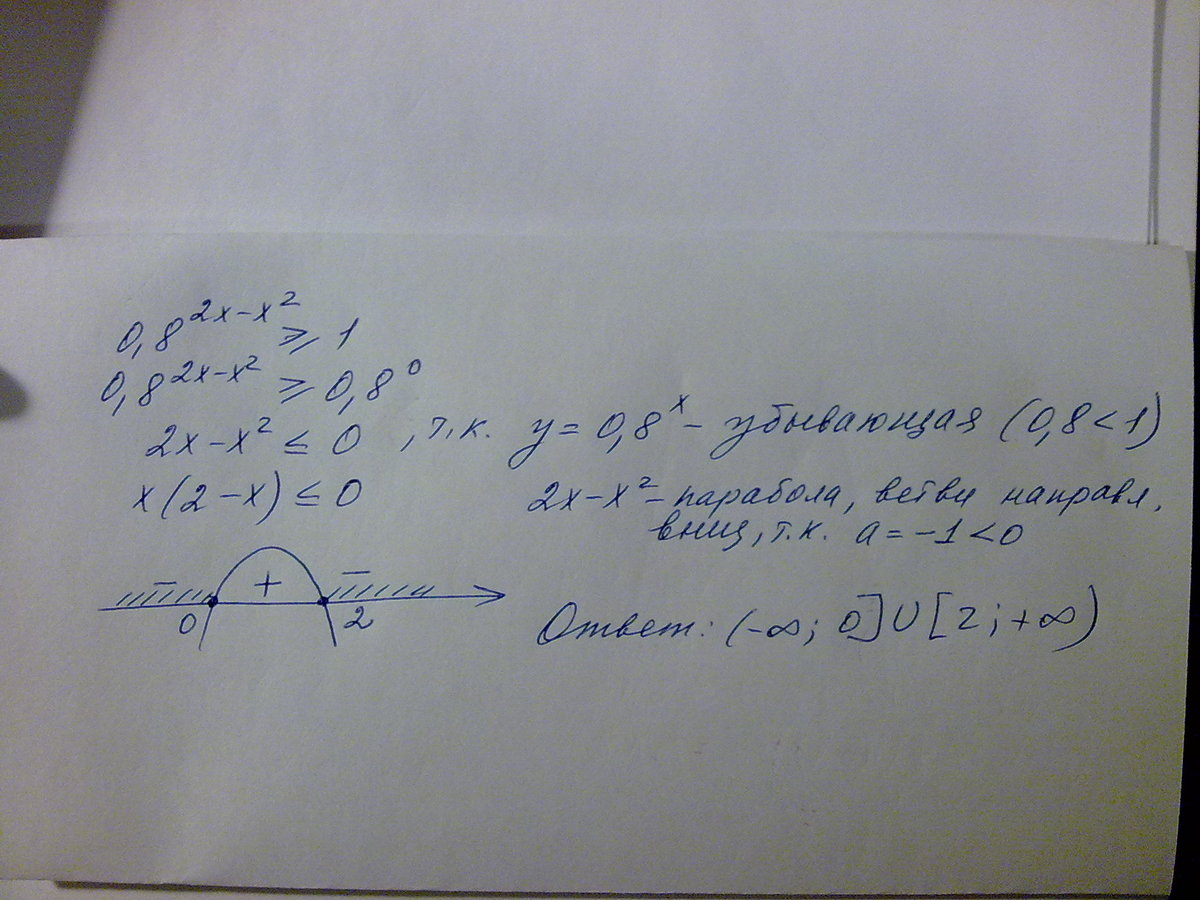 0,8^(2x-x²) ≥ 1
0,8^(2x-x²) ≥ 0,8⁰
2x-x² ≤ 0 , т.к. y = 0,8ˣ - убывающая (0,8<1)
x(2-x) ≤ 0
2x-x² - парабола, ветви направл.
вниз, т.к. a = -1 < 0
- + -
0 2
Ответ: (-∞; 0]∪[2; +∞)